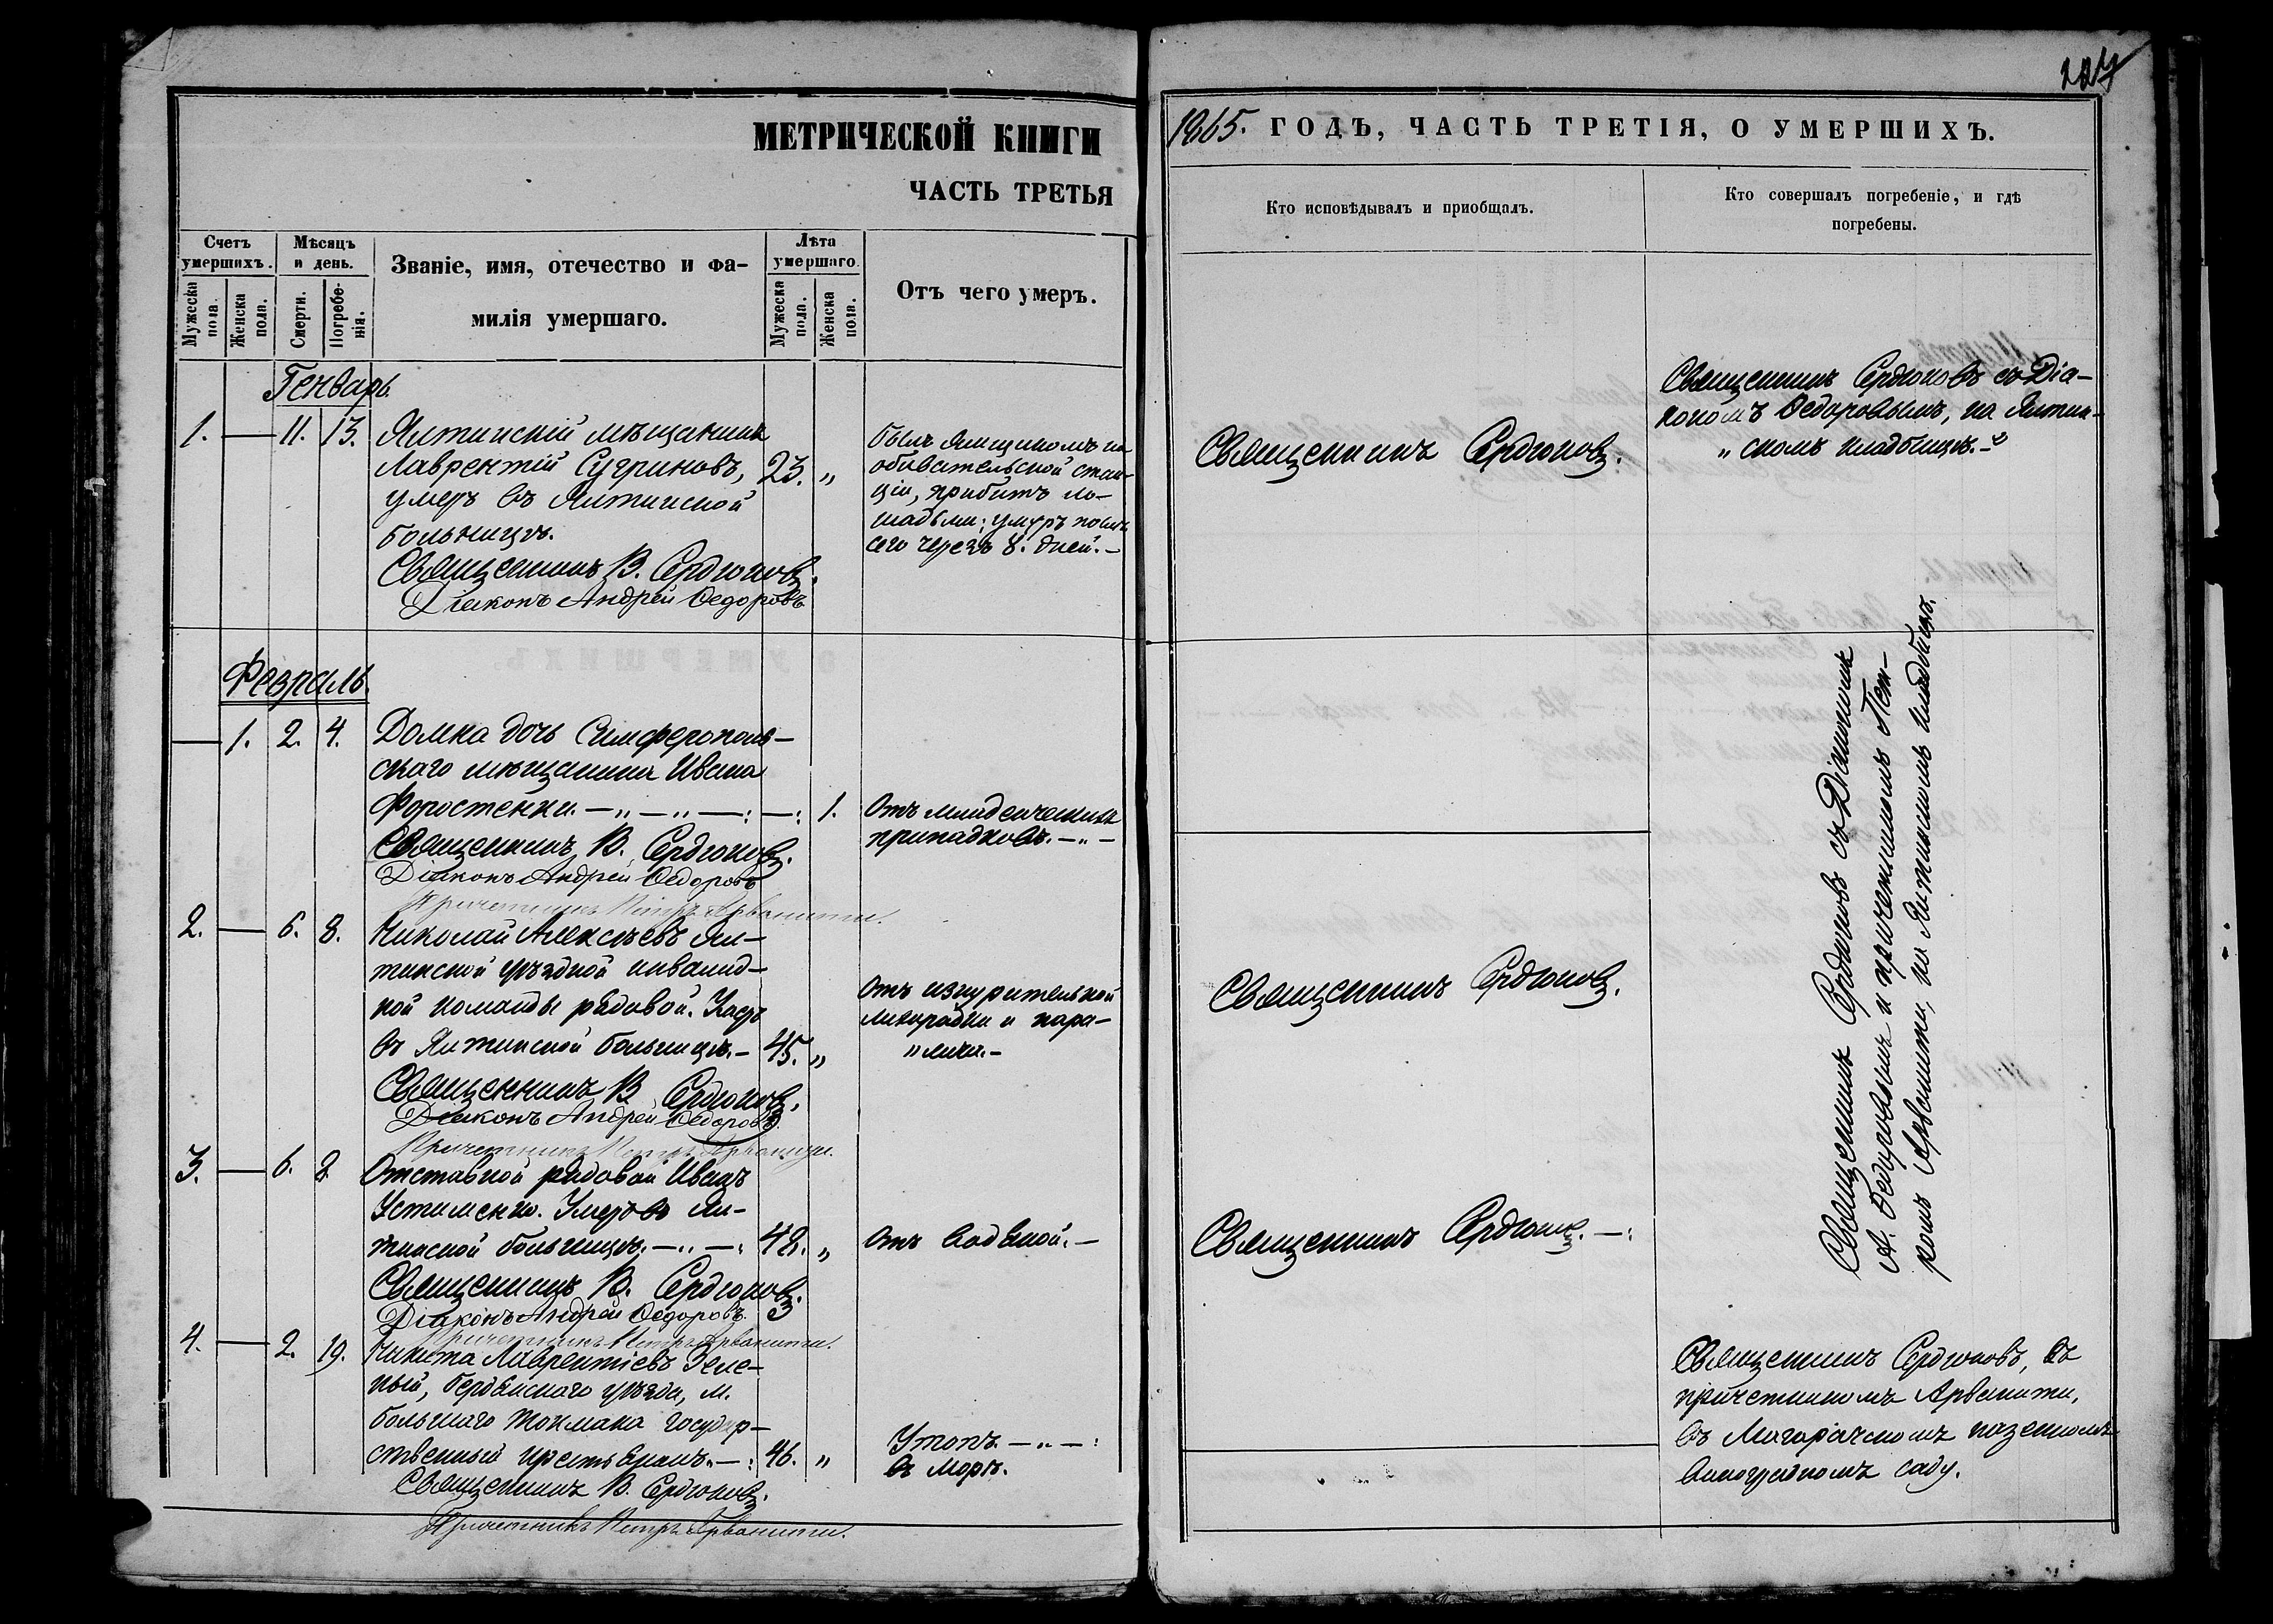 МЕТРИЧЕСКОЙ КНИГИ
ЧАСТЬ ТРЕТЬЯ
Счетъ умершихъ.
Мѣсяцъ и день.
Званіе, имя, отечество и фа-
милія умершаго.
Лѣта умершаго.
Отъ чего умеръ.
Мужеска пола.
Женска пола.
Смерти.
Погребе-
нія.
Мужеска пола.
Женска пола.
Генварь
1. — 11. 13. Ялтинскій мѣщанинъ
Лаврентій Сугриновъ, 23. „
умеръ въ Ялтинской
больницѣ.
былъ ямщикомъ на
обывательской стан-
ціи, прибитъ ло-
шадьми; умеръ послѣ
сего черезъ 8. дней. —
Священникъ В. Сердюковъ.
Діаконъ Андрей Ѳедоровъ
Февраль.
— 1. 2. 4. Домна дочь Симферополь-
скаго мѣщанина Ивана
Форостенки. — 1.
Отъ младенческихъ
припадковъ. —
Священникъ В. Сердюковъ.
Діаконъ Андрей Ѳедоровъ
Причетникъ Петръ Арванити.
2. — 6. 8. Николай Алексѣевъ Ял-
тинской уѣздной инвалид-
ной команды рядовой. Умеръ
въ Ялтинской больницѣ. — 45. „
Отъ изнурительной
лихорадки и пара-
„ лича. —
Священникъ В. Сердюковъ.
Діаконъ Андрей Ѳедоровъ.
Причетникъ Петръ Арванити.
3. — 6. 8. Отставной рядовой Иванъ
Устименко. Умеръ въ Ял-
тинской больницѣ. — 48. „
Отъ водяной. —
Священникъ В. Сердюковъ.
Діаконъ Андрей Ѳедоровъ.
Причетникъ Петръ Арванити.
4. — 2. 19. Никита Лаврентіевъ Зеле-
ный, бердянскаго уѣзда, м.
большаго токмака государ-
ственный крестьянинъ. — 46. „
Утопъ. —
въ морѣ.
Священникъ В. Сердюковъ.
Причетникъ Петръ Арванити.
1865. ГОДЪ, ЧАСТЬ ТРЕТІЯ, О УМЕРШИХЪ.
Кто исповѣдывалъ и приобщалъ.
Кто совершалъ погребеніе, и гдѣ
погребены.
Священникъ Сердюковъ.
Священникъ Сердюковъ съ Діа-
кономъ Ѳедоровымъ, на Ялтин-
„ скомъ кладбищѣ. —
Священникъ Сердюковъ.
Священникъ Сердюковъ. —
Священникъ Сердюковъ съ Діакономъ
А. Ѳедоровымъ и причетникомъ Пет-
ромъ Арванити, на Ялтинскомъ кладбищѣ.
Священникъ Сердюковъ, съ
причетникомъ Арванити,
въ Магарачскомъ казенномъ
виноградномъ саду.